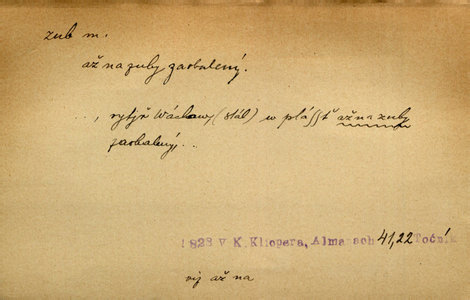 zub m.
až na zuby zaobalený.
..., rytíř Wáclaw, (stál) w plášť až na zuby
zaobalený, ..
1828 V K. Klicpera, Almanach 41,22 Točník
viz až na